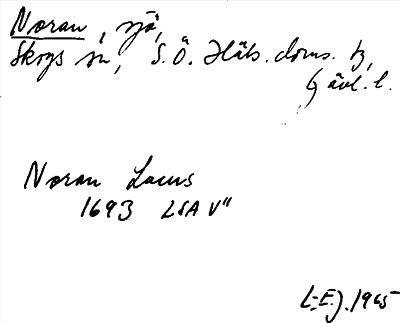 Noran, sjö,
Skogs sn, S.Ö. Häls. doms. tg,
Gävl. l.
Noran Lacus
1693 LSA V"
L-E.J. 1965